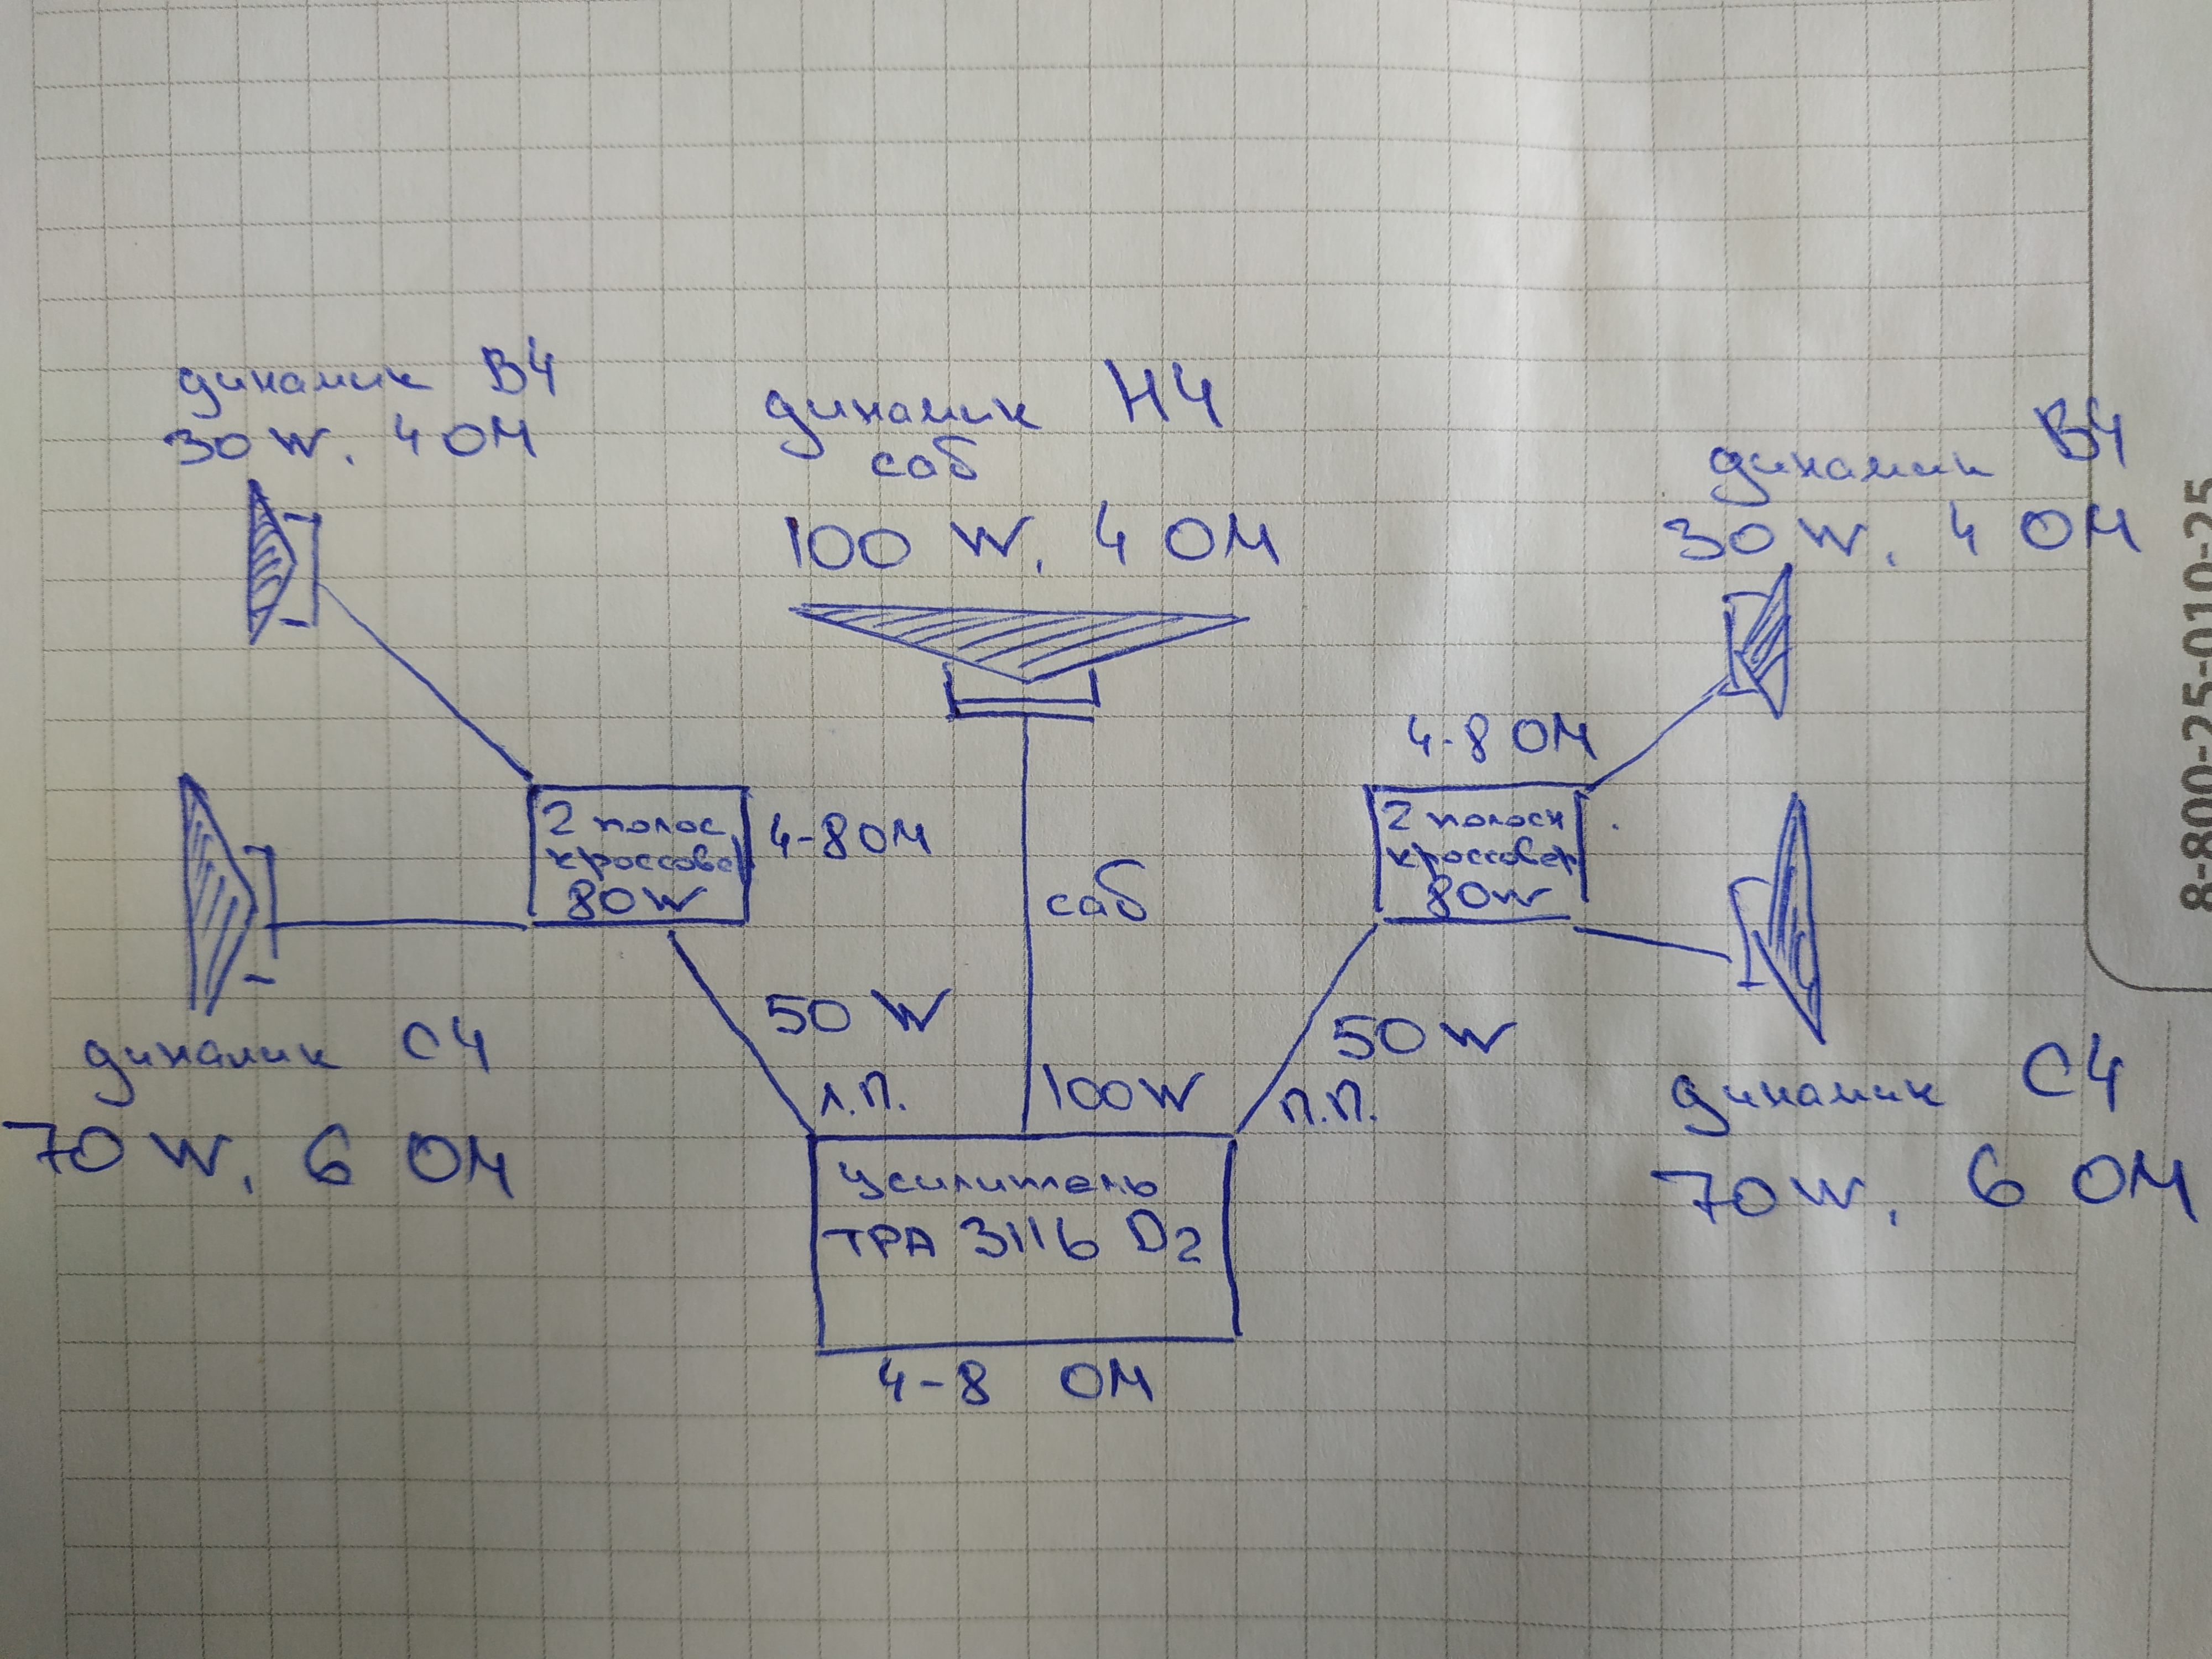 динамик ВЧ
30 W. 4 ОМ
динамик НЧ
саб
100 W. 4 ОМ
динамик ВЧ
30 W. 4 ОМ
4-8 ОМ
2 полос.
кроссовер
80W
4-8 ОМ
2 полосн
кроссовер
80W
саб
50 W
л.п.
100W
50 W
п.п.
динамик СЧ
70 W. 6 ОМ
динамик СЧ
70 W. 6 ОМ
усилитель
TPA 3116 D2
4-8 ОМ
8-800-25-010-25